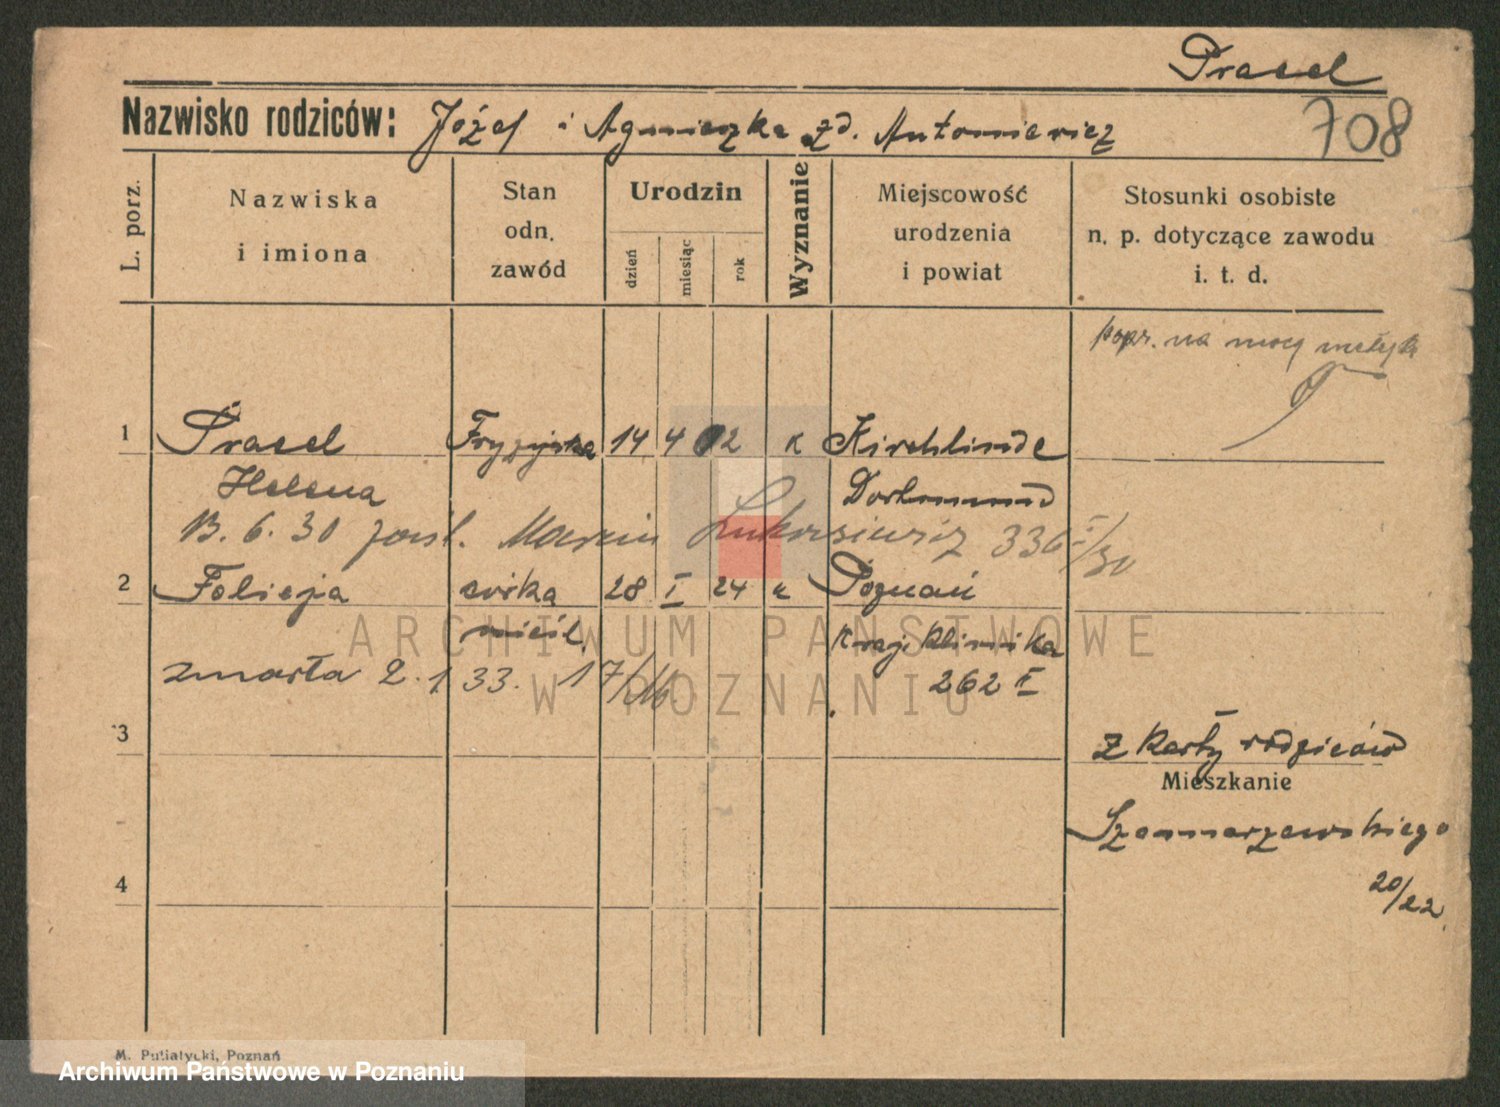 Prasel
Nazwisko rodziców: Józef i Agnieszka zd. Antoniewicz
708
L. porz.
Nazwiska
i imiona
Stan
odn.
zawód
Urodzin
dzień
miesiąc
rok
Wyznanie
Miejscowość
urodzenia
i powiat
Stosunki osobiste
n. p. dotyczące zawodu
i. t. d.
popr. na mocy metryk
1 Prasel Fryzjerka 14 4 02 k Kirchlinde
Helena Dortmund
13. 6. 30 zaśl. Marcin Łukasiewicz 336 I/30
2 Felicja córka 28 I 24 k Poznań
nieśl. Kraj. klinika
zmarła 2. 1 33. 262 I
3
z karty rodziców
Mieszkanie
Szamarzewskiego
20/22
4
M. Putiatycki, Poznań
ARCHIWUM PAŃSTWOWE
W POZNANIU
Archiwum Państwowe w Poznaniu